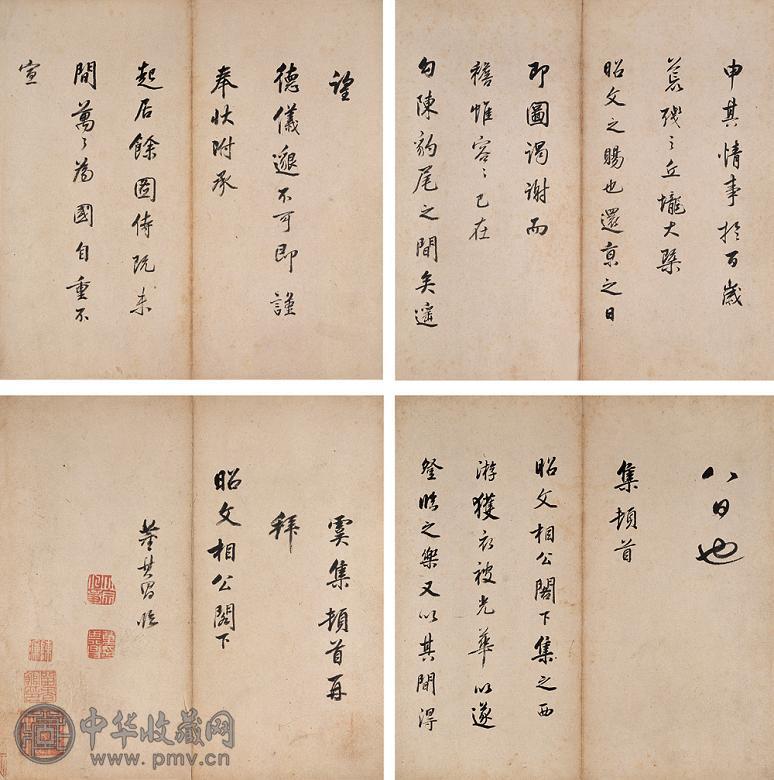 八日也
集頓首
昭文相公閣下集之西
游獲衣被光華以遂
登臨之樂又以其間得
申其情事於百歲
殘之丘壠大槩
昭文之賜也還京之日
即圖謁謝而
襜帷容〻已在
勾陳豹尾之間矣遙
望
德儀邈不可即謹
奉狀附承
起居餘圖侍未
間萬〻為國自重不
宣
虞集頓首再
拜
昭文相公閣下
董其昌臨
中华收藏网
www.pmv.cn